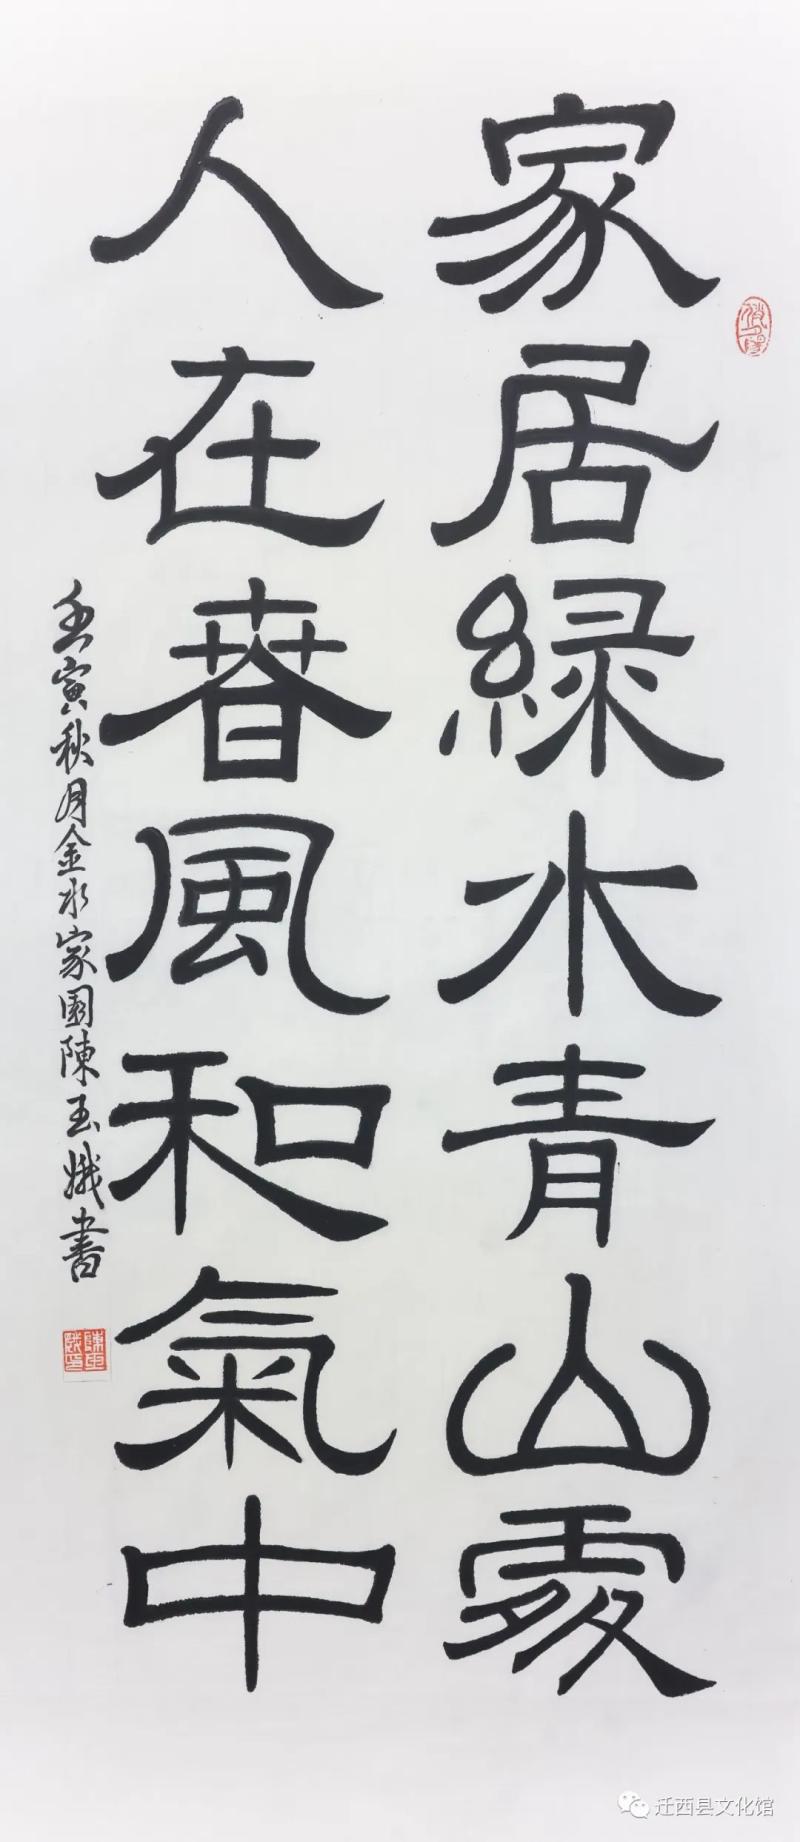 家居緑水青山處
人在春風和氣中
壬寅秋月金水家園陳玉娥書
迁西县文化馆